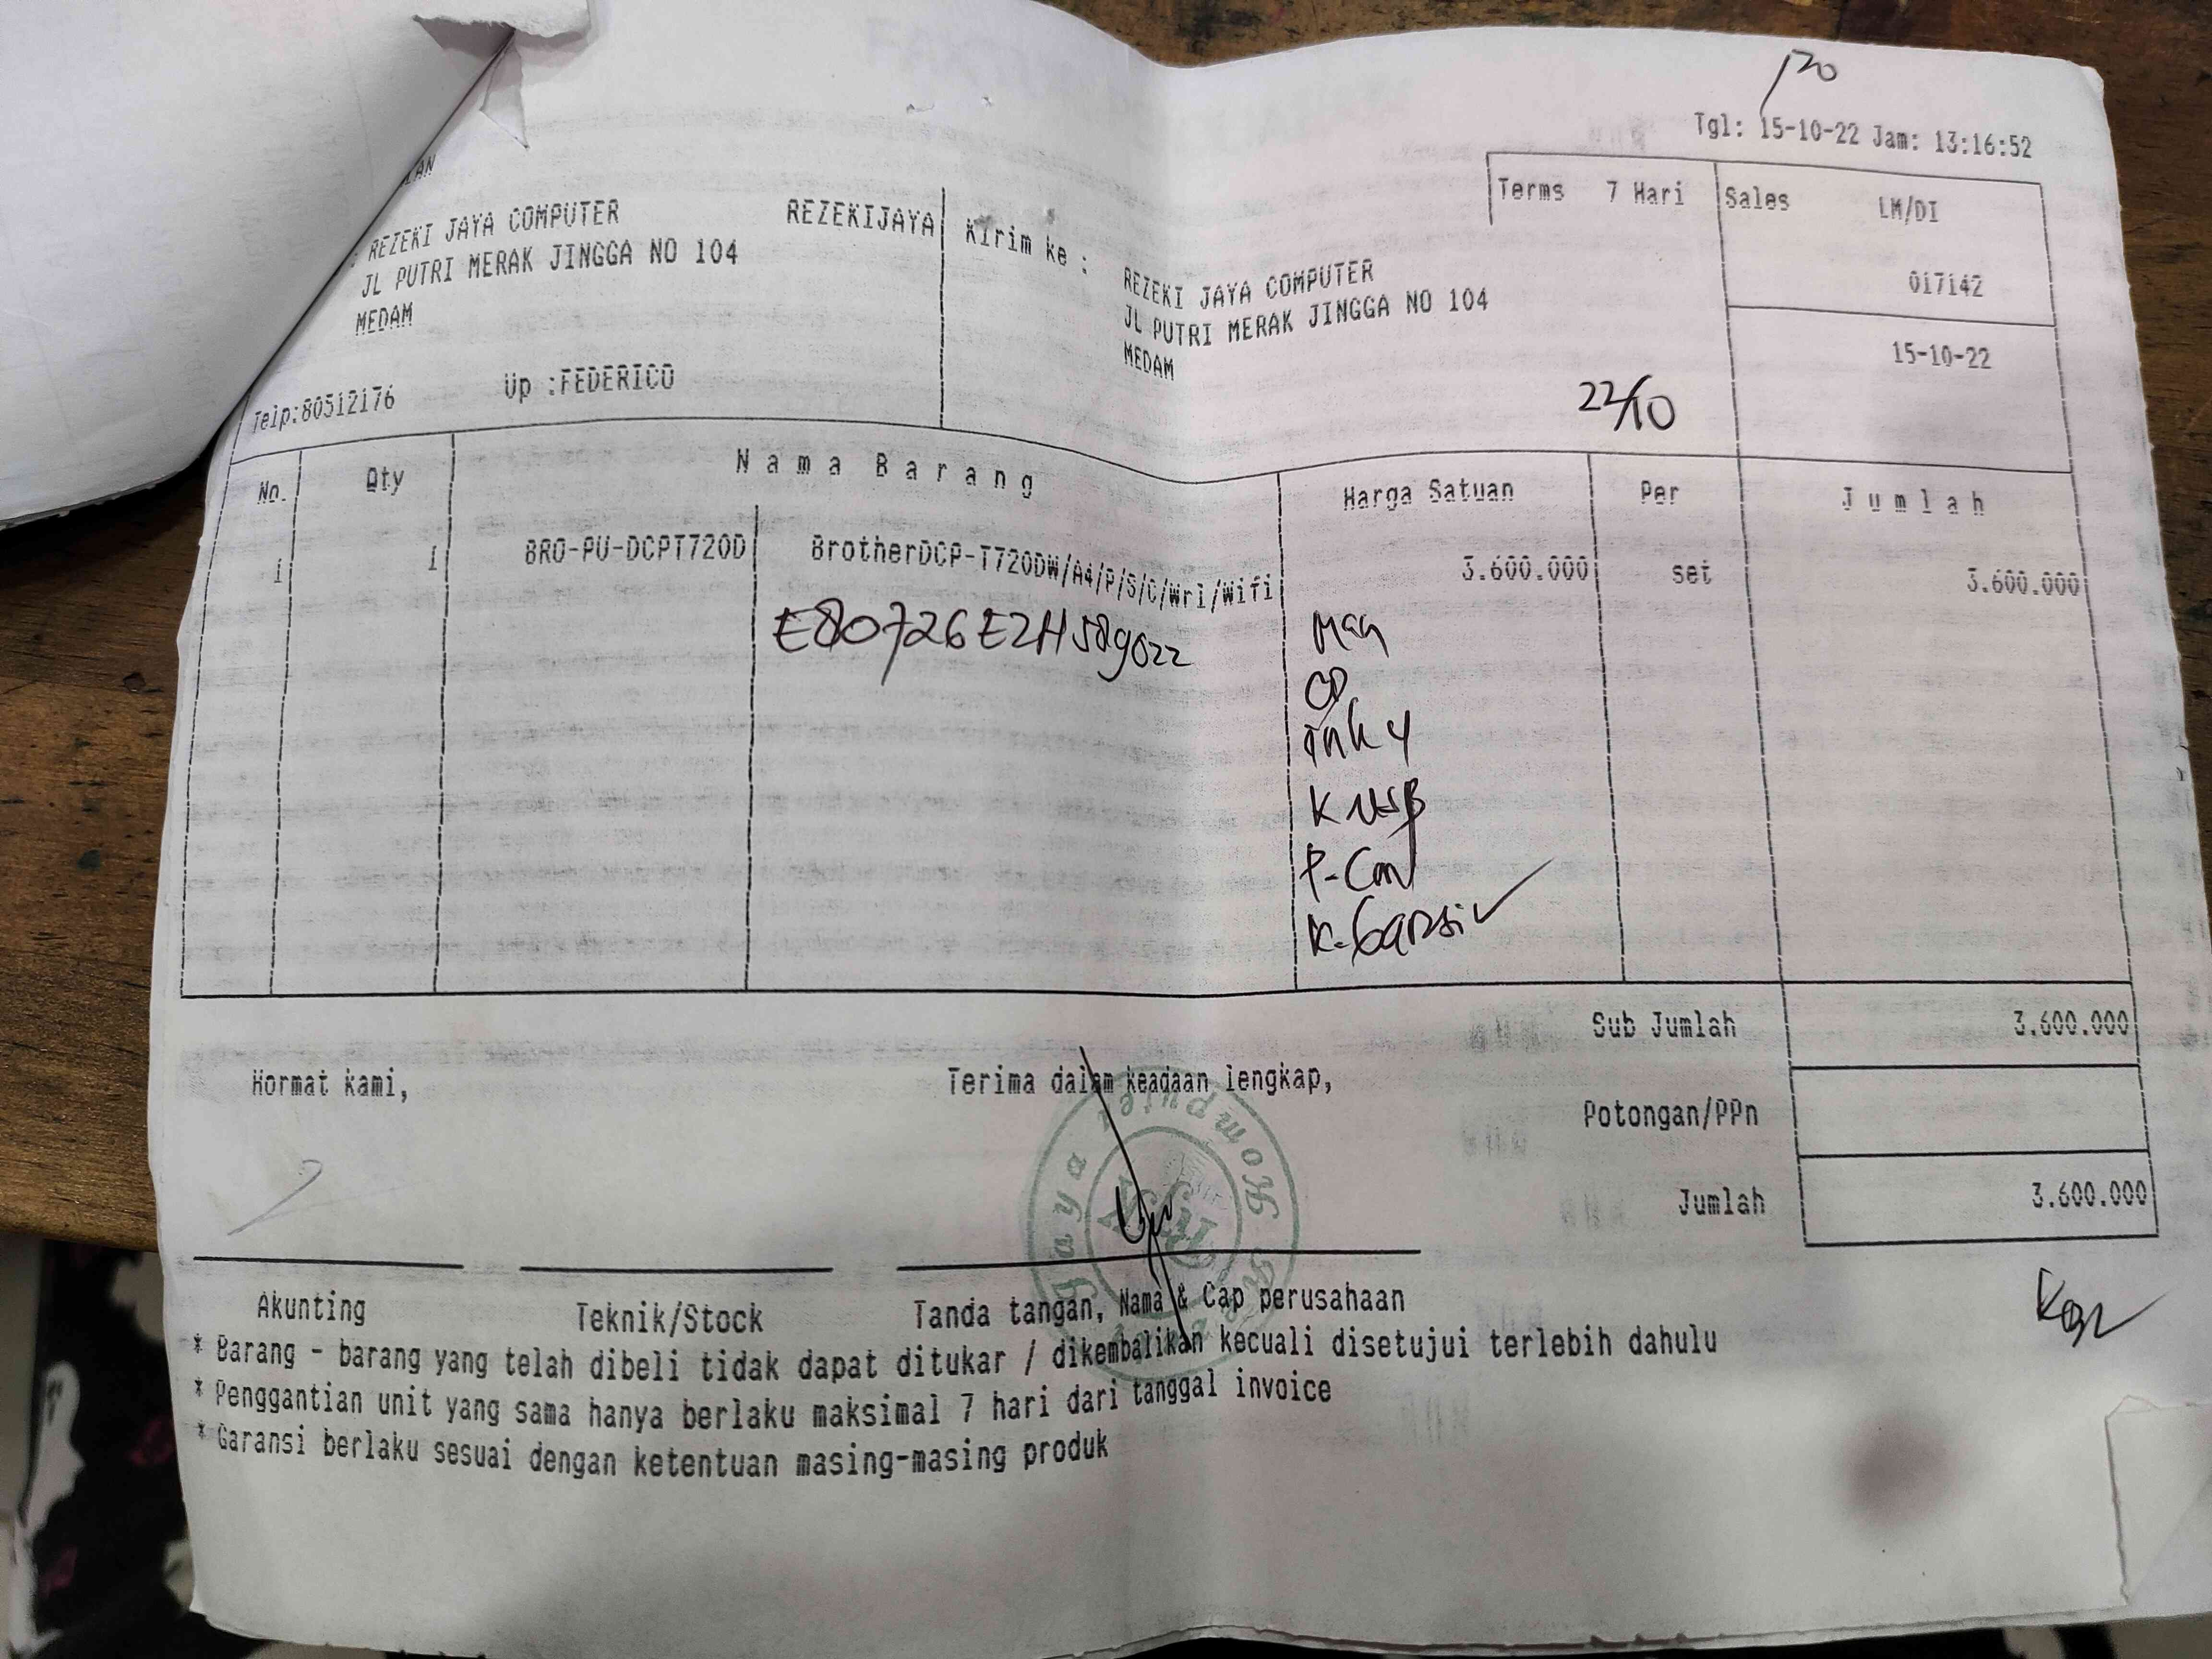 120
Tgl: 15-10-22 Jam: 13:16:52
LAN
REZEKI JAYA COMPUTER REZEKIJAYA
JL PUTRI MERAK JINGGA NO 104
MEDAM
Telp:80512176 Up :FEDERICO
Kirim ke :
REZEKI JAYA COMPUTER
JL PUTRI MERAK JINGGA NO 104
MEDAM
Terms 7 Hari Sales LM/DI
017142
15-10-22
22/10
No. Qty Nama Barang Harga Satuan Per Jumlah
1 1 BRO-PU-DCPT720D BrotherDCP-T720DW/A4/P/S/C/Wrl/Wifi 3.600.000 set 3.600.000
E80726E2H589022
CD
ink 4
K USB
K-Garansi
Sub Jumlah 3.600.000
Potongan/PPn
Jumlah 3.600.000
Hormat kami, Terima dalam keadaan lengkap,
Jaya Komputer
Akunting Teknik/Stock Tanda tangan, Nama & Cap perusahaan
* Barang - barang yang telah dibeli tidak dapat ditukar / dikembalikan kecuali disetujui terlebih dahulu
* Penggantian unit yang sama hanya berlaku maksimal 7 hari dari tanggal invoice
* Garansi berlaku sesuai dengan ketentuan masing-masing produk